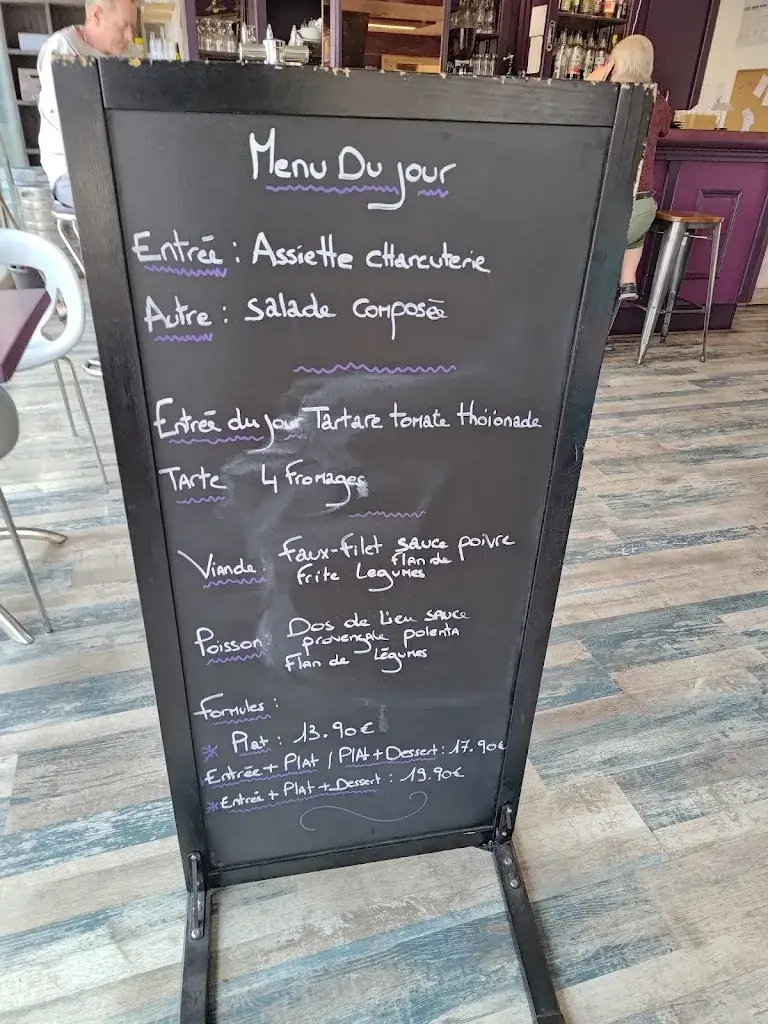 Menu Du jour
Entrée : Assiette charcuterie
Autre : Salade composée
Entrée du jour Tartare tomate thoïonade
Tarte 4 fromages
Viande : faux-filet sauce poivre
Flan de
frite Legumes
Poisson : Dos de Lieu sauce
provençale polenta
Flan de Légumes
formules :
* Plat : 13.90€
Entrée + Plat / Plat + Dessert : 17.90€
* Entrée + Plat + Dessert : 19.90€